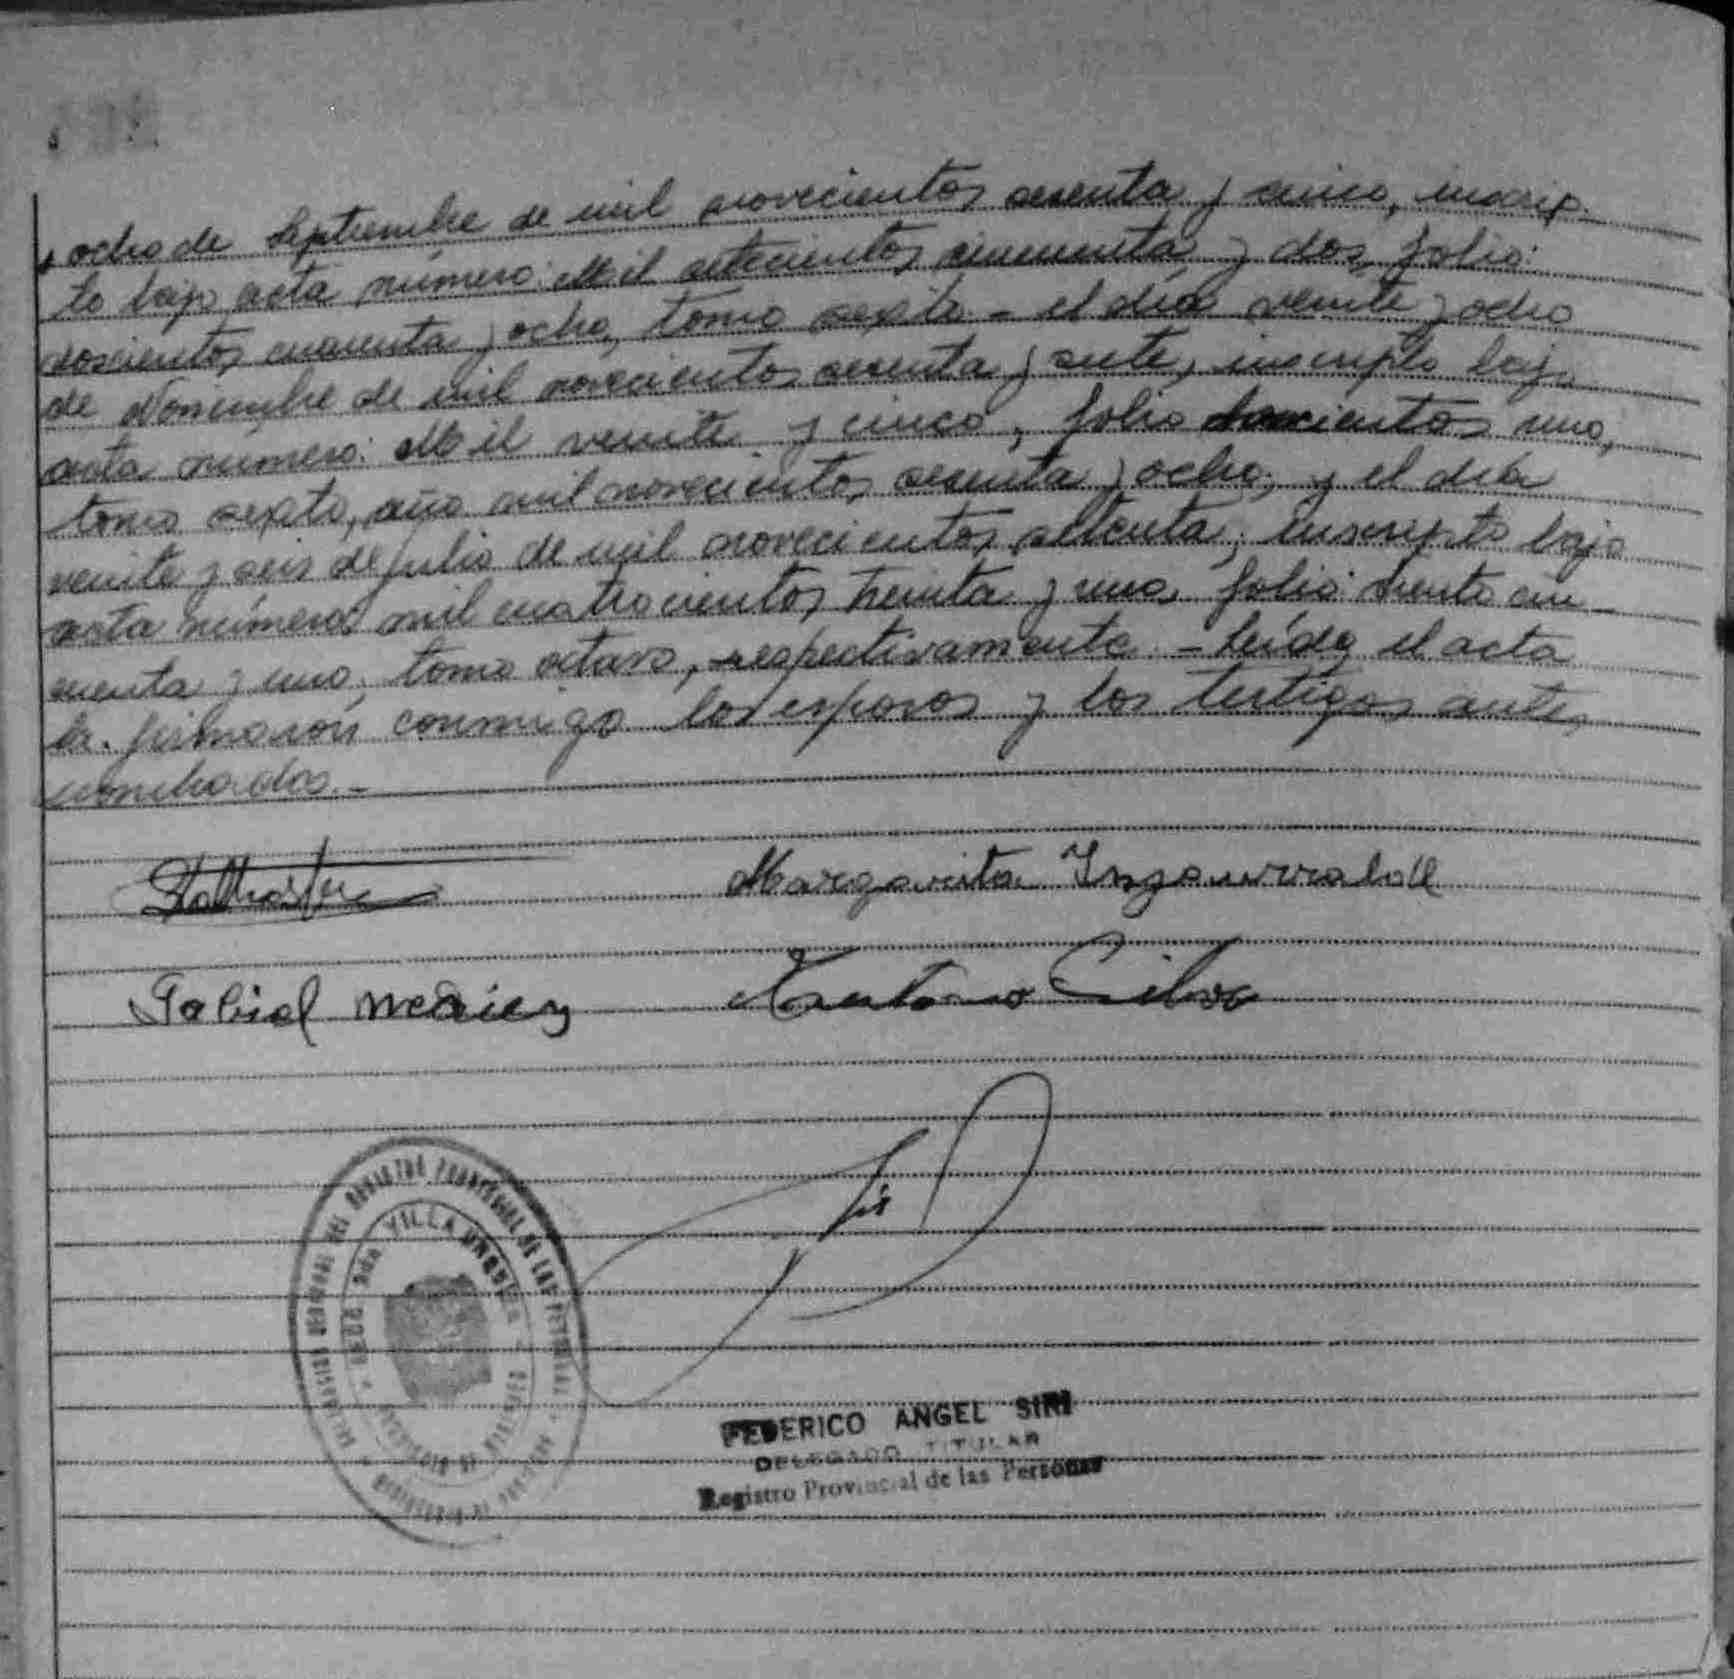 y ocho de Septiembre de mil novecientos sesenta y cinco, inscrip-
to bajo acta número: Mil setecientos cincuenta y dos, folio:
doscientos cuarenta y ocho, tomo sexto - el día veinte y ocho
de Noviembre de mil novecientos sesenta y siete, inscripto bajo
acta número: Mil veinte y cinco, folio doscientos uno,
tomo sexto, año mil novecientos sesenta y ocho, y el día
veinte y seis de julio de mil novecientos setenta, inscripto bajo
acta número: mil cuatrocientos treinta y uno, folio: ciento cin-
cuenta y uno, tomo octavo, respectivamente. - Leída el acta
la firmaron conmigo los esposos y los testigos antes
nombrados. -
Margarita Inzaurralde
Antonio Silva
VILLA
FEDERICO ANGEL SIRI
DELEGADO TITULAR
Registro Provincial de las Personas